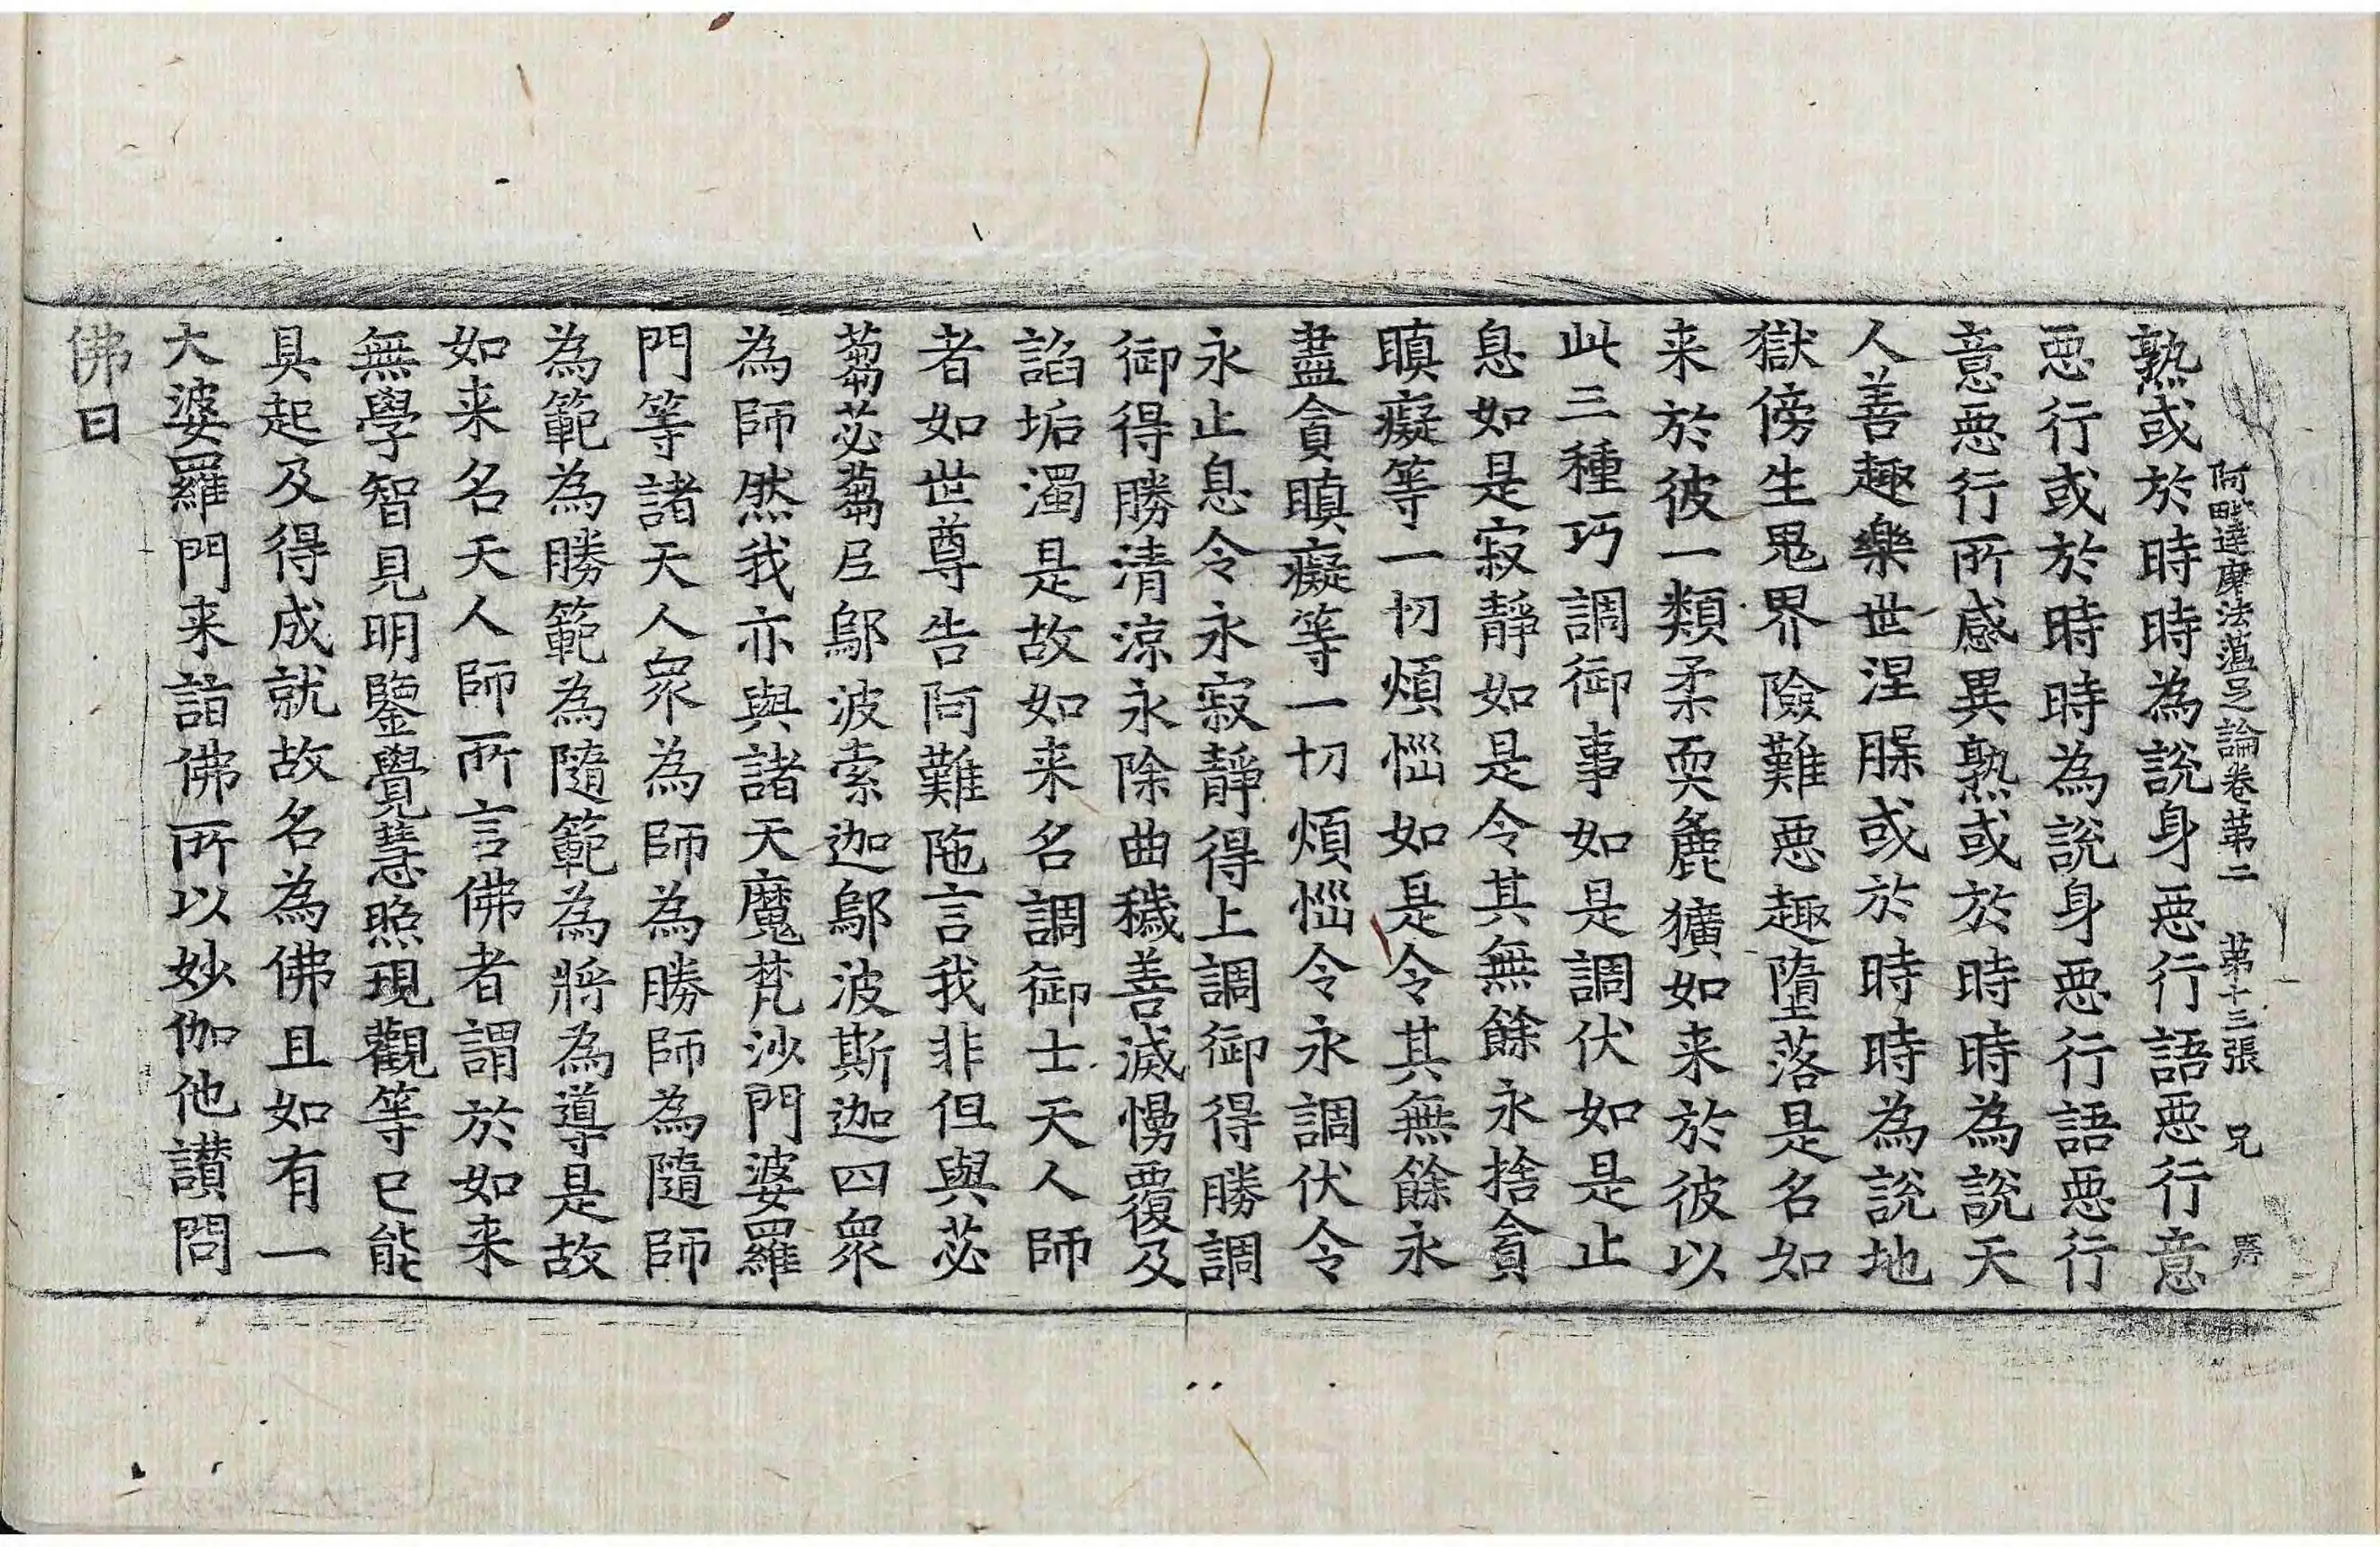 阿毗達磨法蘊足論卷苐二 苐十三張 兄
熟或於時時為說身惡行語惡行意
惡行或於時時為說身惡行語惡行
意惡行所感異熟或於時時為說天
人善趣樂世涅脲或於時時為說地
獄傍生鬼界險難惡趣墮落是名如
来於彼一類柔耎麁獷如来於彼以
此三種巧調御事如是調伏如是止
息如是寂靜如是令其無餘永捨貪
瞋癡等一切煩惱如是令其無餘永
盡貪瞋癡等一切煩惱令永調伏令
永止息令永寂靜得上調御得勝調
御得勝清涼永除曲穢善滅慢覆及
諂垢濁是故如来名調御士天人師
者如世尊告阿難陁言我非但與苾
蒭苾蒭尼鄔波索迦鄔波斯迦四衆
為師然我亦與諸天魔梵沙門婆羅
門等諸天人衆為師為勝師為隨師
為範為勝範為隨範為將為導是故
如来名天人師所言佛者謂於如来
無學智見明鑒覺慧照現觀等已能
具起及得成就故名為佛且如有一
大婆羅門来詣佛所以妙伽他讃問
佛曰